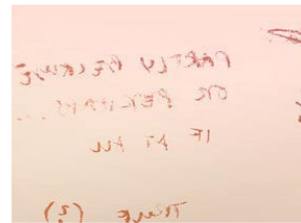 PARTLY BECAUSE
OR PERHAPS ...
IF AT ALL
TRUE (?)